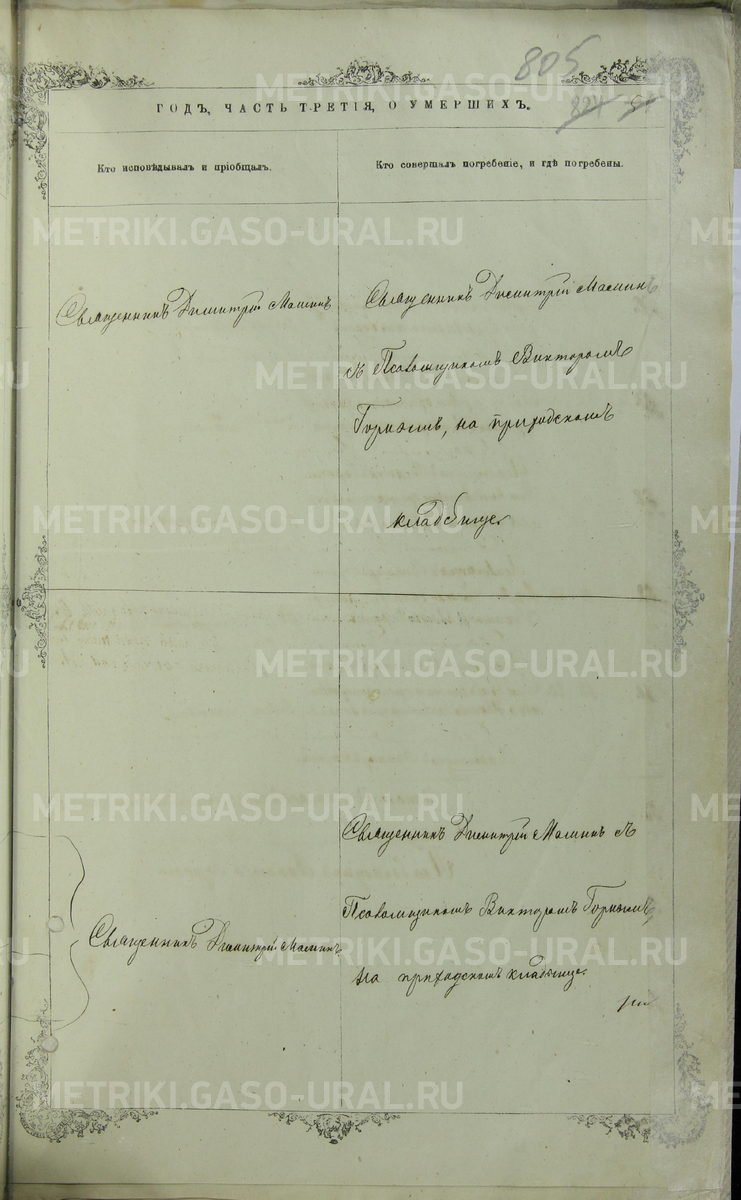 805
ГОДЪ, ЧАСТЬ ТРЕТІЯ, О УМЕРШИХЪ.
Кто исповѣдывалъ и пріобщалъ.
Кто совершалъ погребеніе, и гдѣ погребены.
Священникъ Димитрій Маминъ
Священникъ Димитрій Маминъ
съ Псаломщикомъ Викторомъ
на приходскомъ
кладбище.
Священникъ Димитрій Маминъ
Священникъ Димитрій Маминъ съ
Псаломщикомъ Викторомъ
на приходскомъ кладбище.
METRIKI.GASO-URAL.RU
METRIKI.GASO-URAL.RU
METRIKI.GASO-URAL.RU
METRIKI.GASO-URAL.RU
METRIKI.GASO-URAL.RU
METRIKI.GASO-URAL.RU
METRIKI.GASO-URAL.RU
METRIKI.GASO-URAL.RU